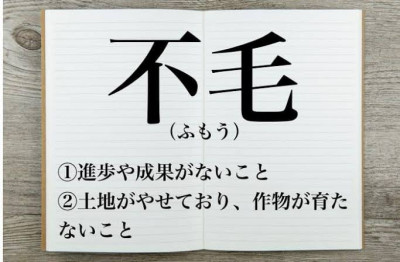 不毛
（ふもう）
①進歩や成果がないこと
②土地がやせており、作物が育た
ないこと